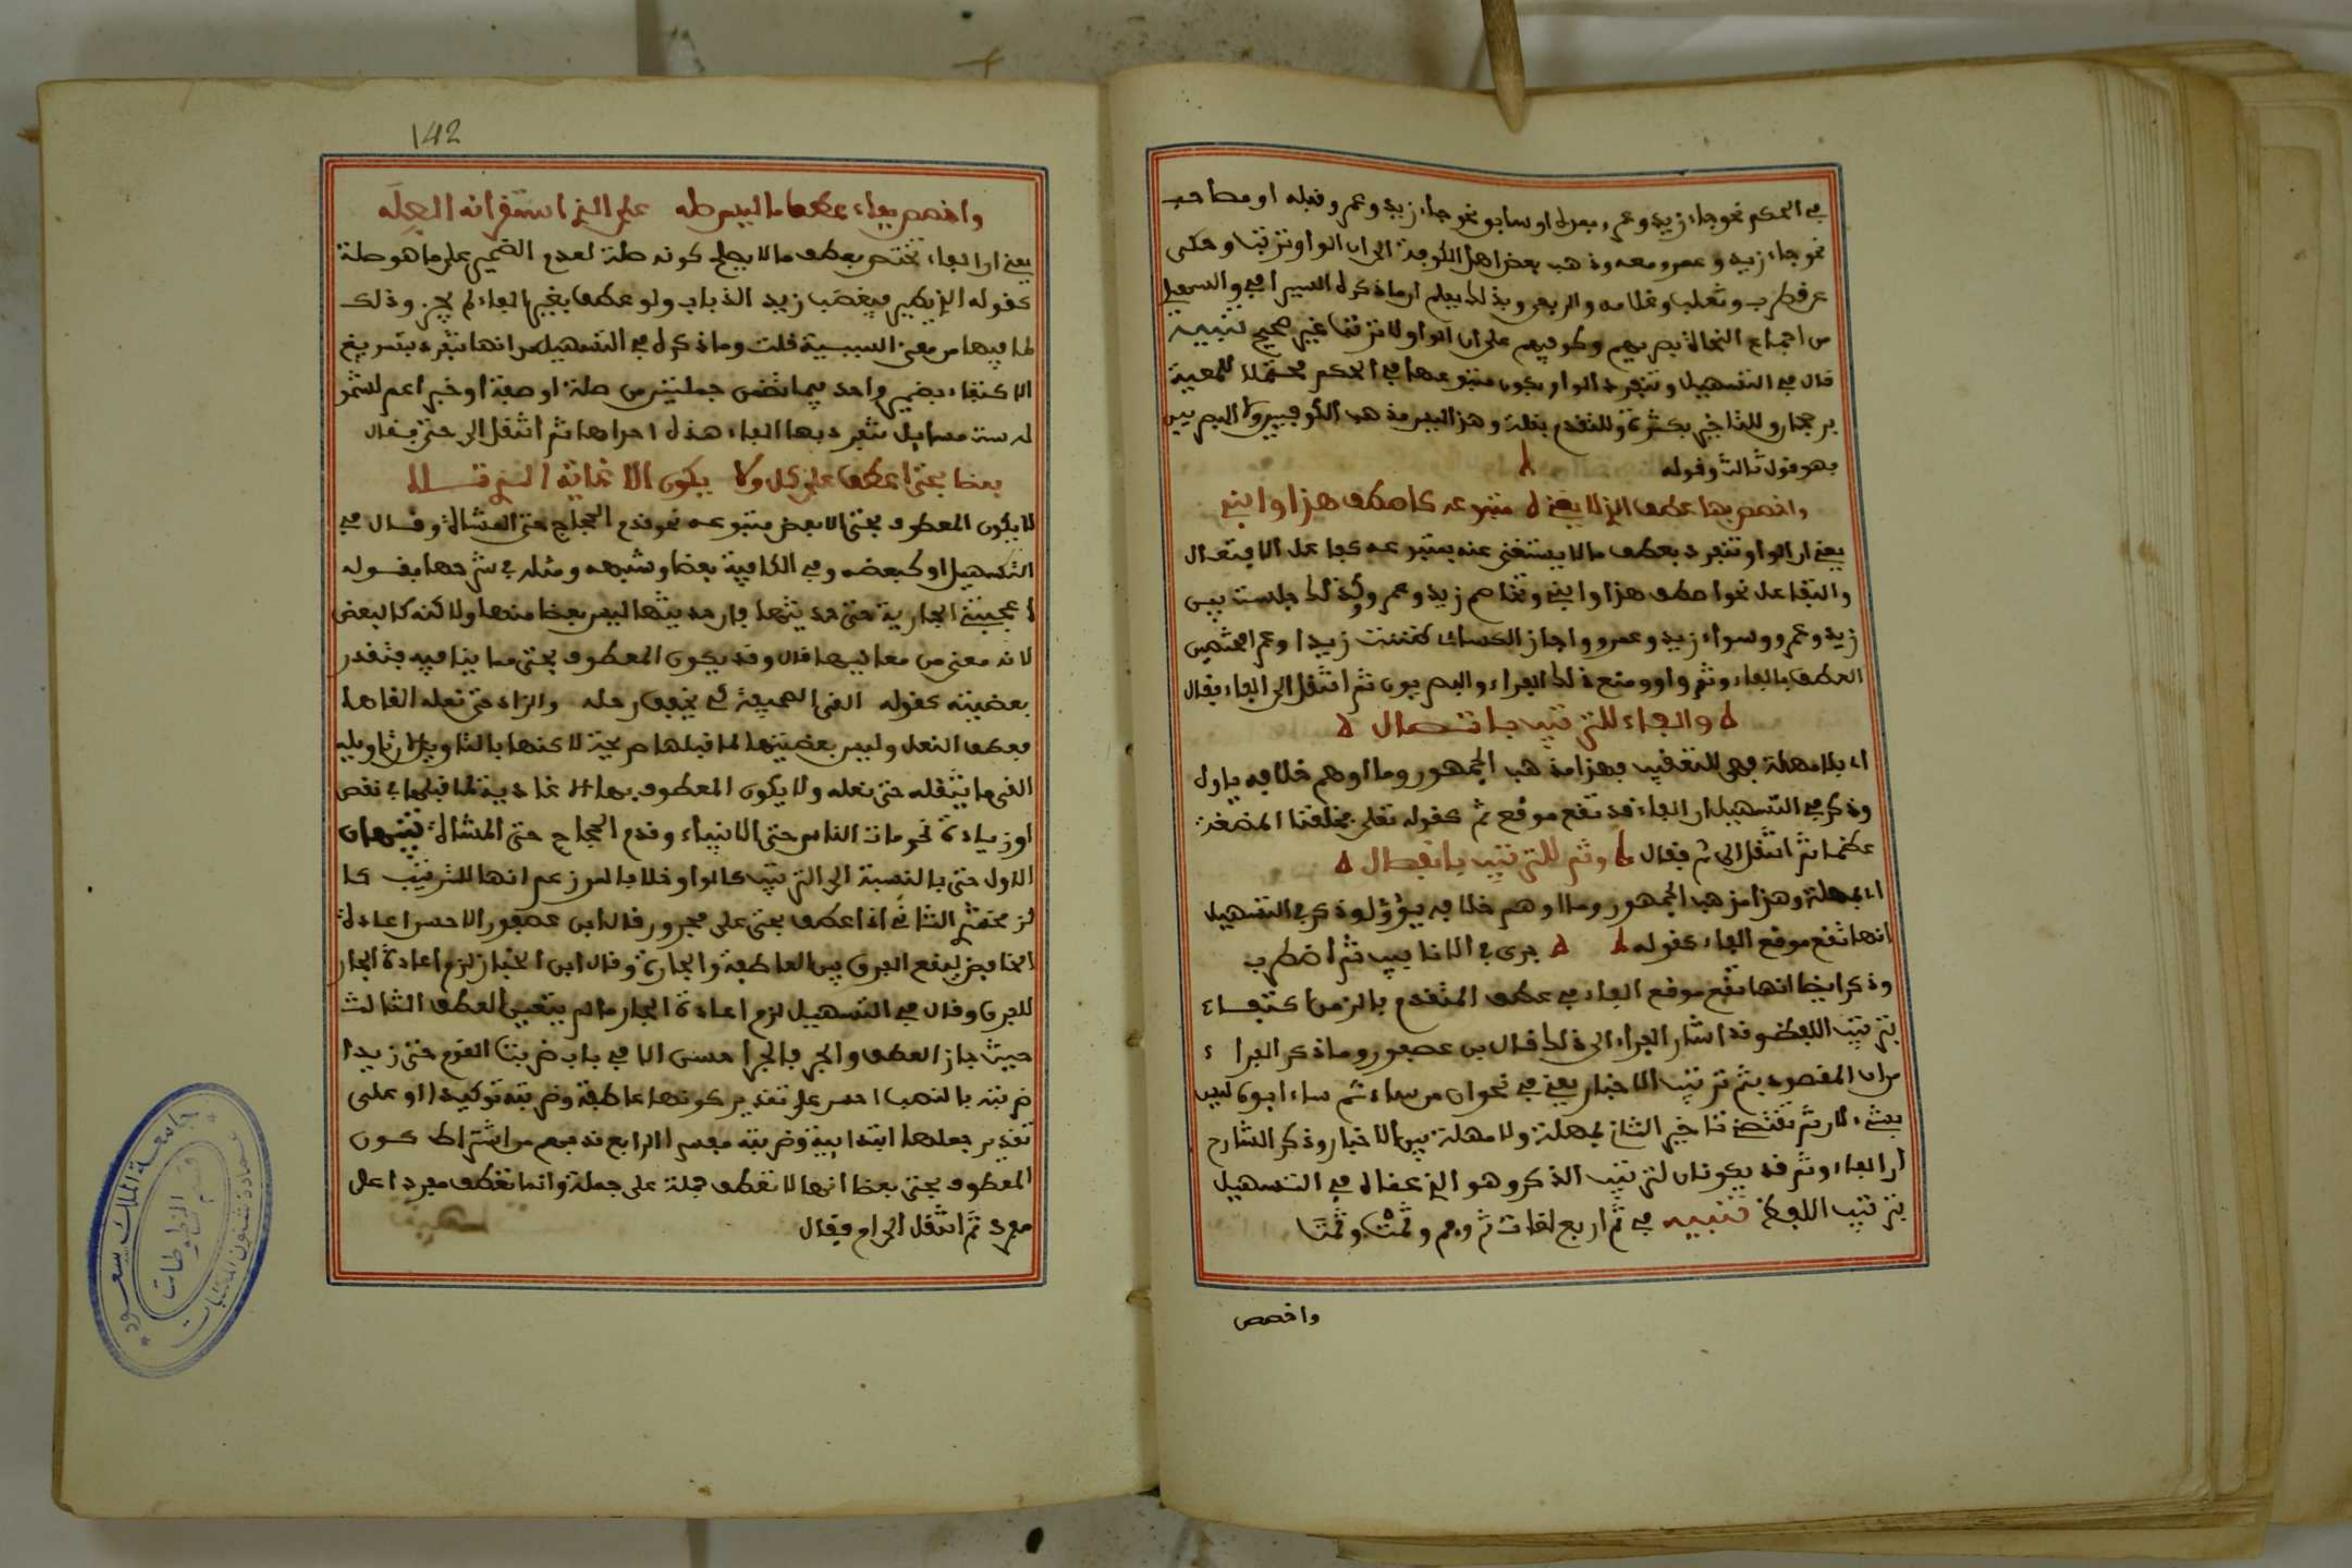 في الحكم نحو جاء زيد وعمرو بعده او سابق نحو جاء زيد وعمرو قبله او مصاحب
نحو جاء زيد وعمرو معه وذهب بعض اهل الكوفة الى ان الواو ترتب وحكى
عن قطرب وثعلب وغلامه والربعي وبذلك يعلم ان ما ذكره السيرافي والسهيلي
من اجماع النحاة بصريهم وكوفيهم على ان الواو لا ترتب غير صحيح تنبيه
قال في التسهيل وتنفرد الواو بكون متبوعها في الحكم محتملا للمعية
برجحان وللتاخير بكثرة وللتقدم بقلة وهذا ليس مذهب الكوفيين ولا البصريين
فهو قول ثالث وقوله
واخصص بها عطف الذي لا يغني ه متبوعه كاصطف هذا وابني
يعني ان الواو تنفرد بعطف ما لا يستغنى عنه بمتبوعه كفاعل الافتعال
والتفاعل نحو اصطف هذا وابني وتخاصم زيد وعمرو وكذلك جلست بين
زيد وعمرو وسواء زيد وعمرو واجاز الكسائي ظننت زيدا وعمرا مختصمين
العطف بالفاء وثم واو ومنع ذلك الفراء والبصريون ثم انتقل الى الفاء فقال
ه والفاء للترتيب باتصال ه
اي بلا مهلة فهي للتعقيب فهذا مذهب الجمهور وما اوهم خلافه ياول
وذكر في التسهيل ان الفاء قد تقع موقع ثم كقوله تعلى فخلقنا المضغة
عظما ثم انتقل الى ثم فقال ه وثم للترتيب بانفصال ه
اي بمهلة وهذا مذهب الجمهور وما اوهم خلافه يؤول وذكر في التسهيل
انها تقع موقع الفاء كقوله ه ه جرى في الانابيب ثم اضطرب
وذكر ايضا انها تقع موقع الفاء في عطف المتقدم بالزمن اكتفاء
بترتيب اللفظ وقد اشار الفراء الى ذلك قال بن عصفور وما ذكر الفراء
من ان المقصود بثم ترتيب الاخبار يعني في نحو ان من ساد ثم ساد ابوه ليس
بشيء لان ثم تقتضي تاخير الثاني بمهلة ولا مهلة بين الاخبار وذكر الشارح
ان الفاء وثم قد يكونان لترتيب الذكر وهو الذي عناه في التسهيل
بترتيب اللفظ تنبيه في ثم اربع لغات ثم وفم وثمت وثمت
واخصص
142
واخصص بفاء عطف ما ليس صله على الذي استقر انه الصله
يعني ان الفاء تختص بعطف ما لا يصلح كونه صلة لعدم الضمير على ما هو صلة
كقوله الذي يطير فيغضب زيد الذباب ولو عطف بغير الفاء لم يجز وذلك
لما فيها من معنى السببية قلت وما ذكره في التسهيل من انها تنفرد بتسويغ
الاكتفاء بضمير واحد فيما تضمن جملتين من صلة او صفة او خبر اعم لشمو
له ست مسايل تنفرد بها الفاء هذه احداها ثم انتقل الى حتى فقال
بعضا بحتى اعطف على كل ولا يكون الا غاية الذي تلا
لا يكون المعطوف بحتى الا بعض متبوعه نحو قدم الحجاج حتى المشاة وقال في
التسهيل او كبعضه وفي الكافية بعضا وشبهه ومثله في شرحها بقوله
اعجبتني الجارية حتى حديثها فان حديثها ليس بعضا منها ولاكنه كالبعض
لانه معنى من معانيها قال وقد يكون المعطوف بحتى مباينا فيه فتقدر
بعضيته كقوله القى الصحيفة كي يخفف رحله والزاد حتى نعله القاها
فعطف النعل وليس بعضيتها لما قبلها صريحة لاكنها بالتاويل لان تاويله
القى ما يثقله حتى نعله ولا يكون المعطوف بها الا غاية لما قبلها في نقص
او زيادة نحو مات الناس حتى الانبياء وقدم الحجاج حتى المشاة تنبيهان
الاول حتى بالنسبة الى الترتيب كالواو خلافا لمن زعم انها للترتيب كا
لزمخشري الثاني اذا عطف بحتى على مجرور قال ابن عصفور الاحسن اعادة
الخافض ليقع الفرق بين العاطفة والجارة وقال ابن الخباز لزم اعادة الجار
للفرق وقال في التسهيل لزم اعادة الجار ما لم يتعين العطف الثالث
حيث جاز العطف والجر فالجر احسن الا في باب ضربت القوم حتى زيدا
ضربته بالنصب احسن على تقدير كونها عاطفة وضربته توكيدا او على
تقدير جعلها ابتدائية وضربته مفسرا الرابع قد فهم من اشتراط كون
المعطوف بحتى بعضا انها لا تعطف جملة على جملة وانما تعطف مفردا على
مفرد ثم انتقل الى ام فقال
جامعة الملك سعود
عمادة شئون المكتبات
قسم المخطوطات